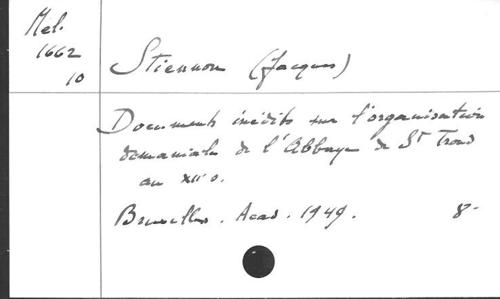 Mel.
1662
10
Stiennon (Jacques)
Documents inédits sur l'organisation
domaniale de l'Abbaye de St Trond
au XII s.
Bruxelles. Acad. 1949. 8-